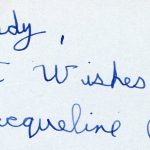 dy,
t Wishes
acqueline (